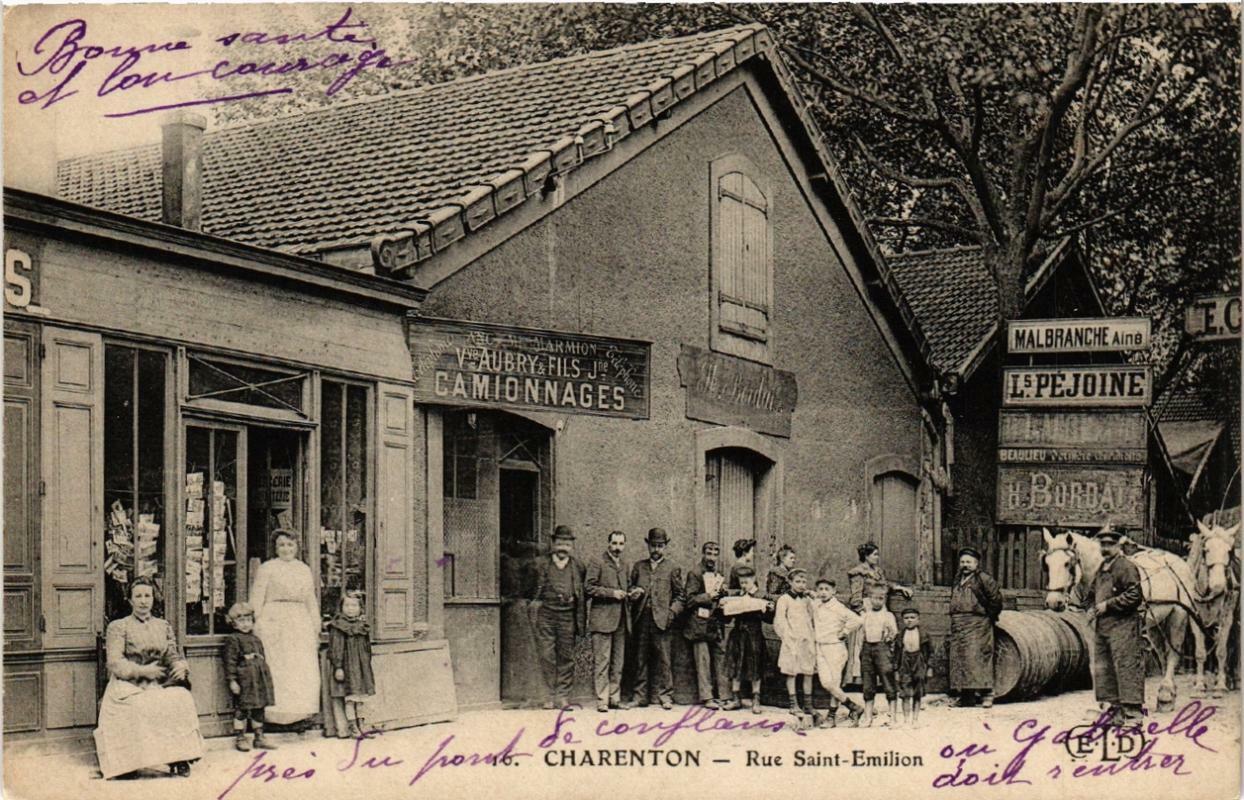 Bonne santé
et bon courage
S
MARMION
Vve AUBRY & FILS Jne
CAMIONNAGES
MALBRANCHE Aîné
Ls. PÉJOINE
BEAULIEU
H. BORDAT
E.C
près du pont de conflans
où Gabrielle
doit rentrer
16. CHARENTON — Rue Saint-Emilion
ELD